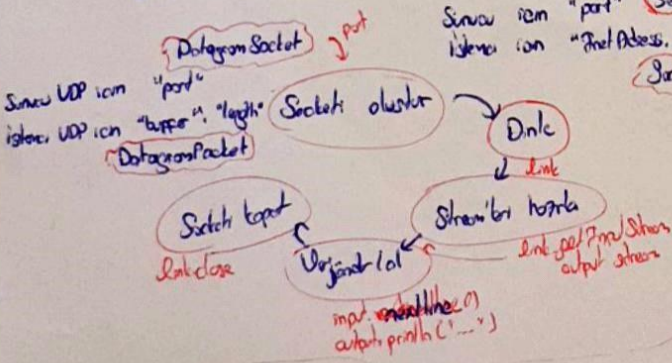 Sunucu için "port"
istemci için "InetAdress,
DatagramSocket
port
Sunucu UDP için "port"
istemci UDP için "buffer", "length"
DatagramPacket
Socketi oluştur
Dinle
link
Stream'leri hazırla
link.getInputStream
output stream
Veri gönder/al
input.nextline()
output.println("....")
Socketi kapat
link.close